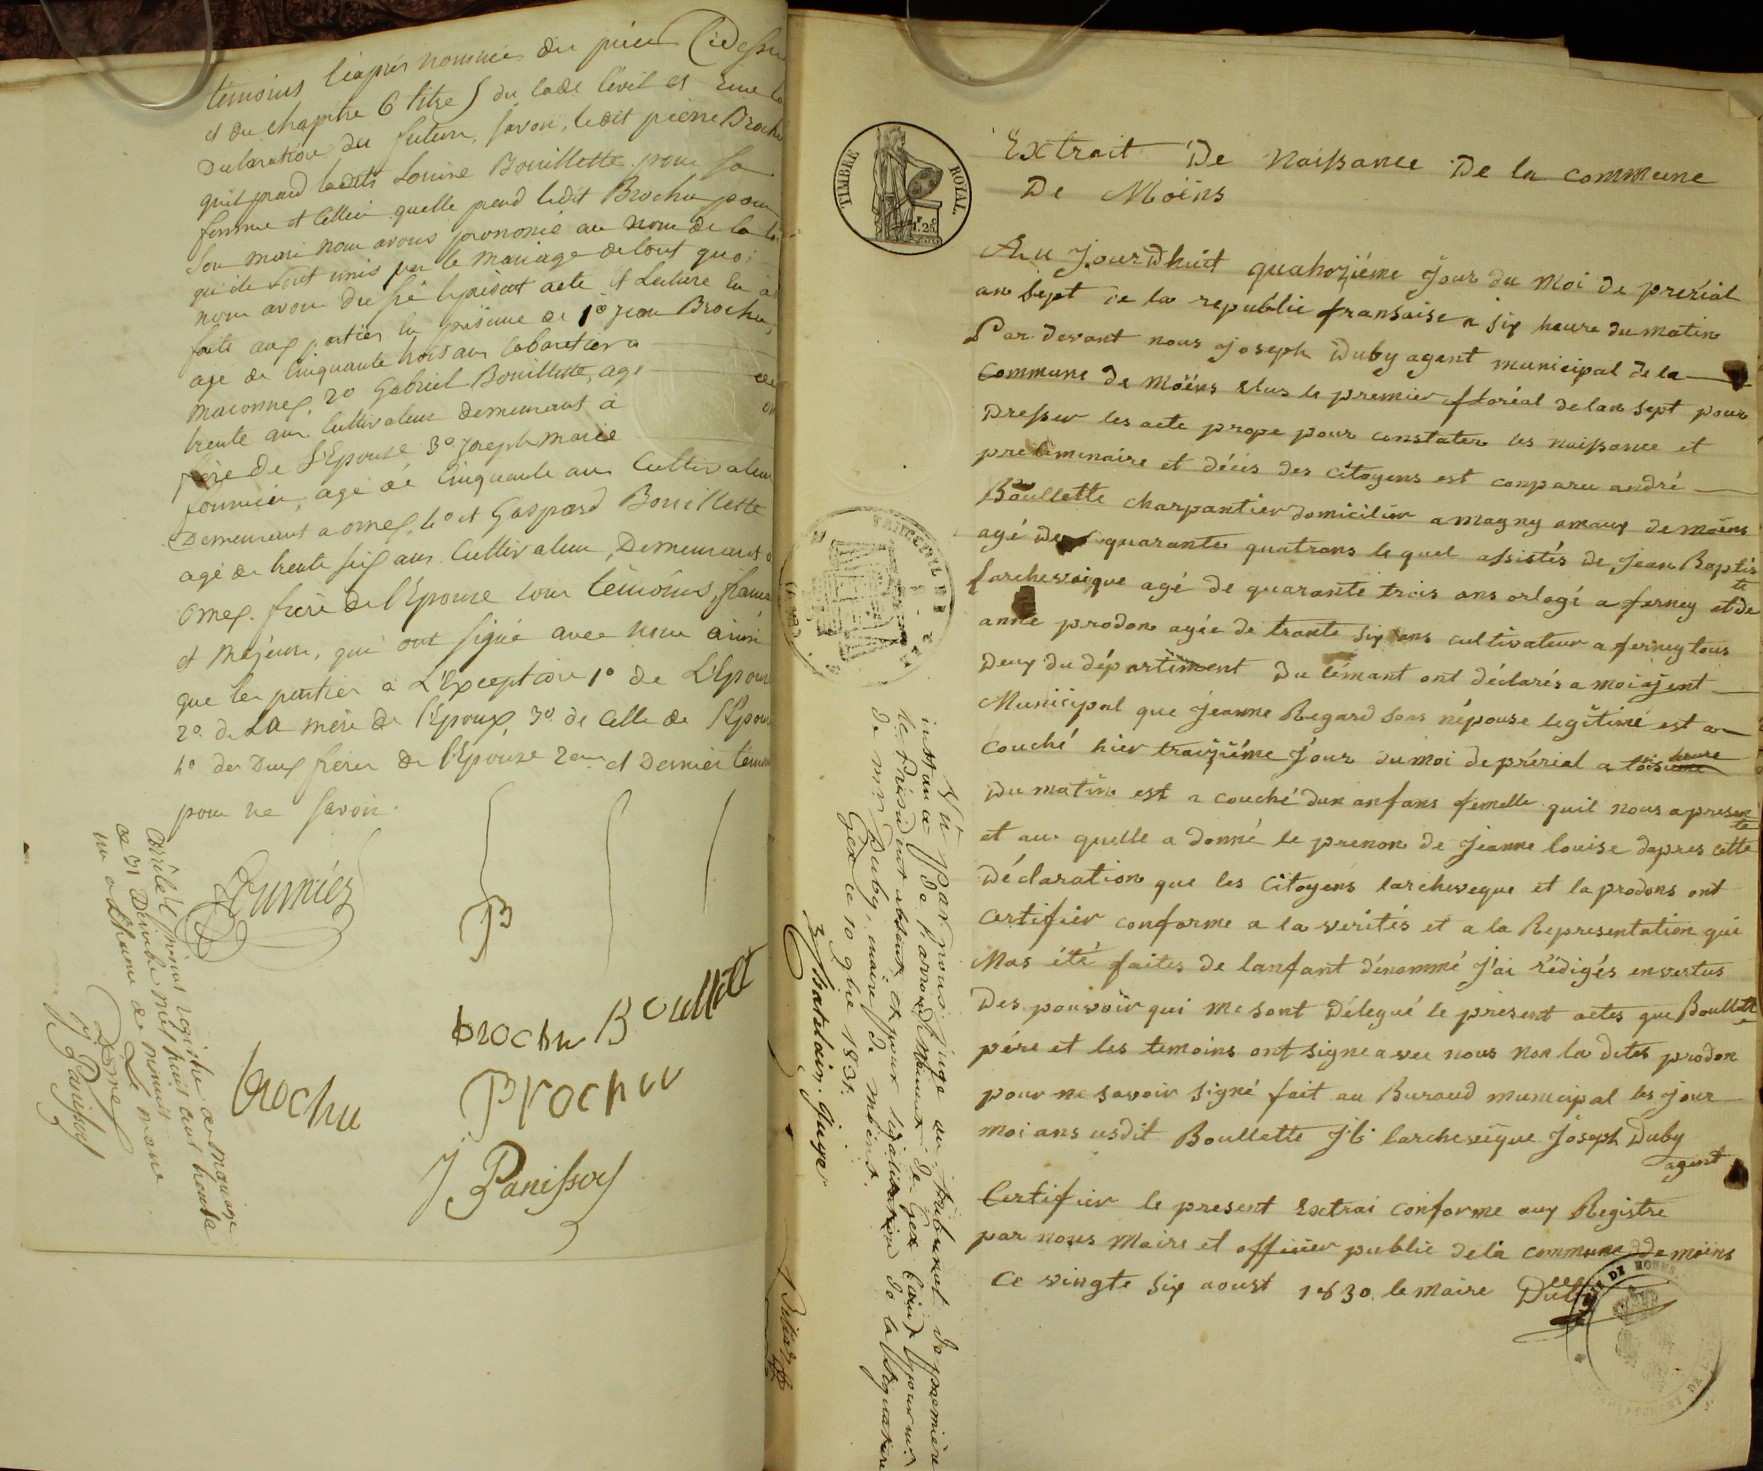 témoins ciaprès nommés du
et du chapitre 6 titre 5 du Code Civil et
Declaration des futurs, savoir, ledit pierre Brochu
qu'il prend ladite Louise Bouillette pour sa
femme et celle-ci quelle prend ledit Brochu pour
son mari nous avons prononcé au nom de la
qu'ils sont unis par le mariage de tout quoi
nous avons dressé le présent acte et Lecture en a
faite aux parties en présence de 1º jean Brochu,
age de Cinquante trois ans Cabaretier a
maconnex, 2º Gabriel Bouillette, age
trente ans Cultivateur demeurant à
frère de L'Epouse 3º joseph marie
fournier, agé de Cinquante ans Cultivateur
Demeurant a ornex, 4º et Gaspard Bouillette
agé de trente six ans Cultivateur, Demeurant a
ornex. frère de l'Epouse tous témoins,
et majeurs, qui ont signé avec nous ainsi
que les parties à L'Exception 1º de L'Epouse
2º de La mère de l'Epoux, 3º de Celle de l'Epouse
4º des Deux frères de l'Epouse 2eme et Dernier témoins
pour ne savoir.
Fournier
P
brochu Boullett
brochu Brochu
J Panissod
le présent registre de mariage
ce 31 Décembre mil huit cent trente
un a L'heure de minuit
Le maire
D'ornex
J Panissod
TIMBRE ROYAL
1.25
Extrait De Naissance De la commune
De Moëns
Au Jourdhuit quatorziéme Jour du Moi de prerial
an sept de la republic fransaise a six heure du matin
Par devant nous joseph Duby agent municipal de la
Commune de Moëns Elus le premier floréal de lan sept pour
Dresser les acte prope pour constater les naissance et
preliminaire et décés des citoyens est conparu andré
Boullette charpantier domicilier a magny amaux de moëns
agé de quarante quatrans le quel assistés de Jean Baptis
te
larchevaique agé de quarante trois ans orlogé a ferney et de
anne prodon agée de trante six ans cultivateur a ferney tous
Deux du département Du lémant ont déclarés a moi ajent
Municipal que jeanne Regard sons népouse legitime est a
couché hier traiziéme Jour du moi de prérial a trois heure
Du matin est a couché dun anfans femelle quil nous a presen
té
et au quelle a donné le prenon de Jeanne louise dapres cette
Déclaration que les Citoyens larcheveque et la prodons ont
Certifier conforme a la verités et a la Representation qui
Mas été faites de lanfant dénommé J'ai rédigés en vertus
Des pouvoir qui me sont Délegué le présent actes que Boullette
pére et les temoins ont signe avec nous non la dites prodon
pour ne savoir signé fait au Buraud municipal les jour
moi ans usdit Boullette J.b. larcheveique Joseph Duby
agent
Certifier le present Extrai conforme aux Registre
par nous Maire et officier public de la commune de moëns
Ce vingte six aoust 1830. le maire Duby
Vu par nous, juge au tribunal de premiére
instance de l'arrondissement de Gex
le Président absent, et pour légalisation de la signature
de mr Duby, maire de moëns.
Gex ce 10 9bre 1831.
juge